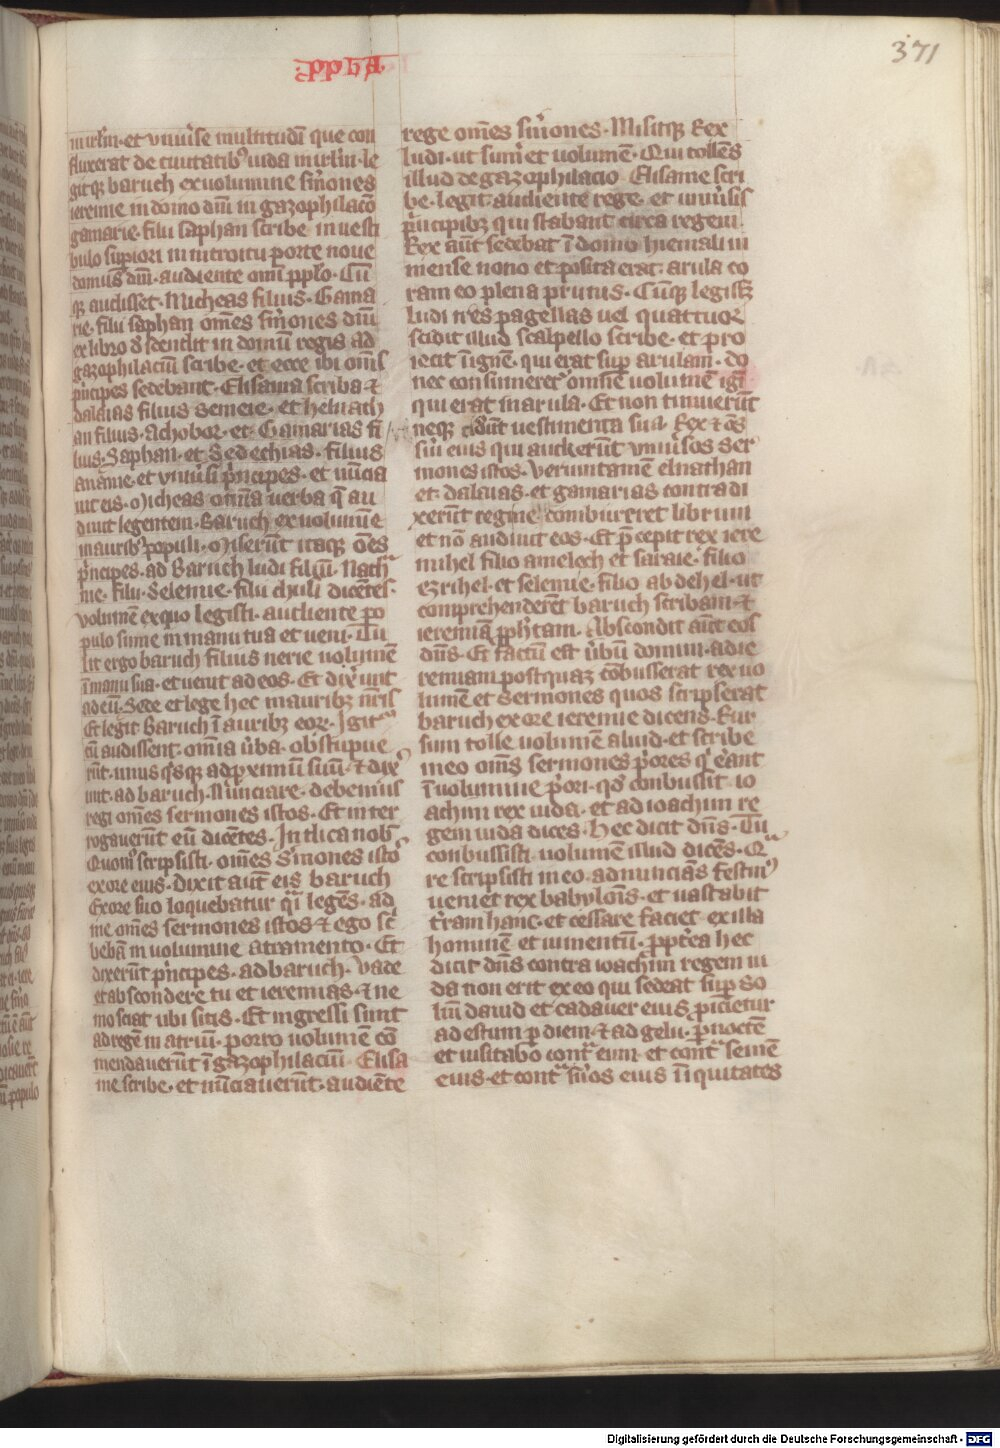 ppha
371
in irl̄m · et vniūse multitudī que con
fluxerat de ciuitatibꝰ iuda in irl̄m · le
gitqꝫ baruch ex uolumine s̄mones
ieremie in domo dn̄i in gazophilacō
gamarie · filii saphan scribe · in uesti
bulo supiori in introitu porte noue
domus dn̄i · audiente om̄i pplō · Cū
qꝫ audisset · Micheas filius · Gama
rie · filii saphan om̄es s̄mones dn̄i
ex libro descendit in domū regis ad
gazophilaciū scribe · et ecce ibi om̄s
p̄ncipes sedebant · Elisama scriba ⁊
dalaias filius semeie · et helnath
an filius · Achobor · et · Gamarias fi
lius · Saphan · et Sedechias · filius
anāie · et vniūsi p̄ncipes · et nūcia
uit eis · Micheas om̄a uerba q̄ au
diuit legentem · Baruch ex uolumīe
in auribꝰ populi · Miserūt itaqꝫ om̄s
p̄ncipes · ad Baruch Iudi filiū · Nath
nie · filii · Selemie · filii chusi dicētes ·
volumē ex quo legisti · audiente po
pulo sume in manu tua et ueni · Tu
lit ergo baruch filius nerie uolumē
ī manu sua · et uenit ad eos · Et dix̄ unt
ad eū · Sede et lege hec in auribꝫ nr̄is
Et legit Baruch ī auribꝫ eoꝝ · Igit
cū audissent · om̄ia ūba · obstupue
rūt · unus qͥsqꝫ ad pximū suū · ⁊ dix̄
unt · ad baruch · Nūnciare · debemus
regi om̄es sermones istos · Et inter
rogauerūt eū dicētes · Indica nob̄
Quomͦ scripsisti · om̄es s̄mones istos
ex ore eius · dixit aūt eis baruch
Ex ore suo loquebatur qͣi legēs · ad
me om̄es sermones istos ⁊ ego sc̄
bebā in uolumine atramento · Et
dixerūt p̄ncipes · ad baruch · vade
et abscondere tu et ieremias · ⁊ ne
mo sciat ubi sitis · Et ingressi sunt
ad regē in atriū · porro uolumē cō
mendauerūt ī gazophilaciū · Elisa
me scribe · et nūciauerūt · audiēte
rege om̄es s̄mones · Misitqꝫ Rex
Iudi · ut sum̄et uolumē · Qui tollēs
illud de gazophilacio Elisame scri
be · legit · audiente rege · et uniūsis
p̄ncipibꝫ qui stabant circa regem
Rex aūt sedebat ī domo hiemali in
mense nono et posita erat · arula co
ram eo plena prunis · Cūqꝫ legiss̄
Iudi tres pagellas uel quattuor
scidit illud scalpello scribe · et pro
iecit ī ignē · qui erat sup arulam · do
nec consumeretͬ omne uolumē igī
qui erat in arula · Et non timuerūt
neqꝫ scidūt uestimenta sua · Rex ⁊ om̄s
sūi eius qui audierūt vniūsos ser
mones istos · Veruntamē elnathan
et · dalaias · et gamarias contradi
xerūt regi ne · combureret librum
et nō audiuit eos · Et p̄cepit rex iere
mihel filio amelech et saraie · filio
ezrihel · et selemie · filio abdehel · ut
comprehenderēt baruch scribam · ⁊
ieremiā pph̄tam · Abscondit aūt eos
dn̄s · Et factū est ūbū domini · ad ie
remiam postquaꝫ cōbusserat rex uo
lumē et sermones quos scripserat
baruch ex ore ieremie dicens · Rur
sum tolle uolumē aliud · et scribe
in eo om̄s sermones p̄ores qͥ erant
ī uolumine p̄ori · qd̄ conbussit io
achim rex iuda · et ad ioachim re
gem iuda dices · Hec dicit dn̄s · Tu
conbussisti · uolumē illud dicēs · Qͣ
re scripsisti in eo · adnuncians festinꝰ
ueniet rex babylonis · et uastabit
t̄ram hanc · et cessare faciet · ex illa
hominē et iumentū · ppt̄ea hec
dicit dn̄s contra ioachim regem iu
da non erit ex eo qui sedeat sup so
liū dauid et cadauer eius proicietur
ad estum p diem · ⁊ ad gelu · p noctē
et uisitabo contͣ eum · et contͣ semē
eius · et contͣ s̄uos eius īiquitates
Digitalisierung gefördert durch die Deutsche Forschungsgemeinschaft - DFG